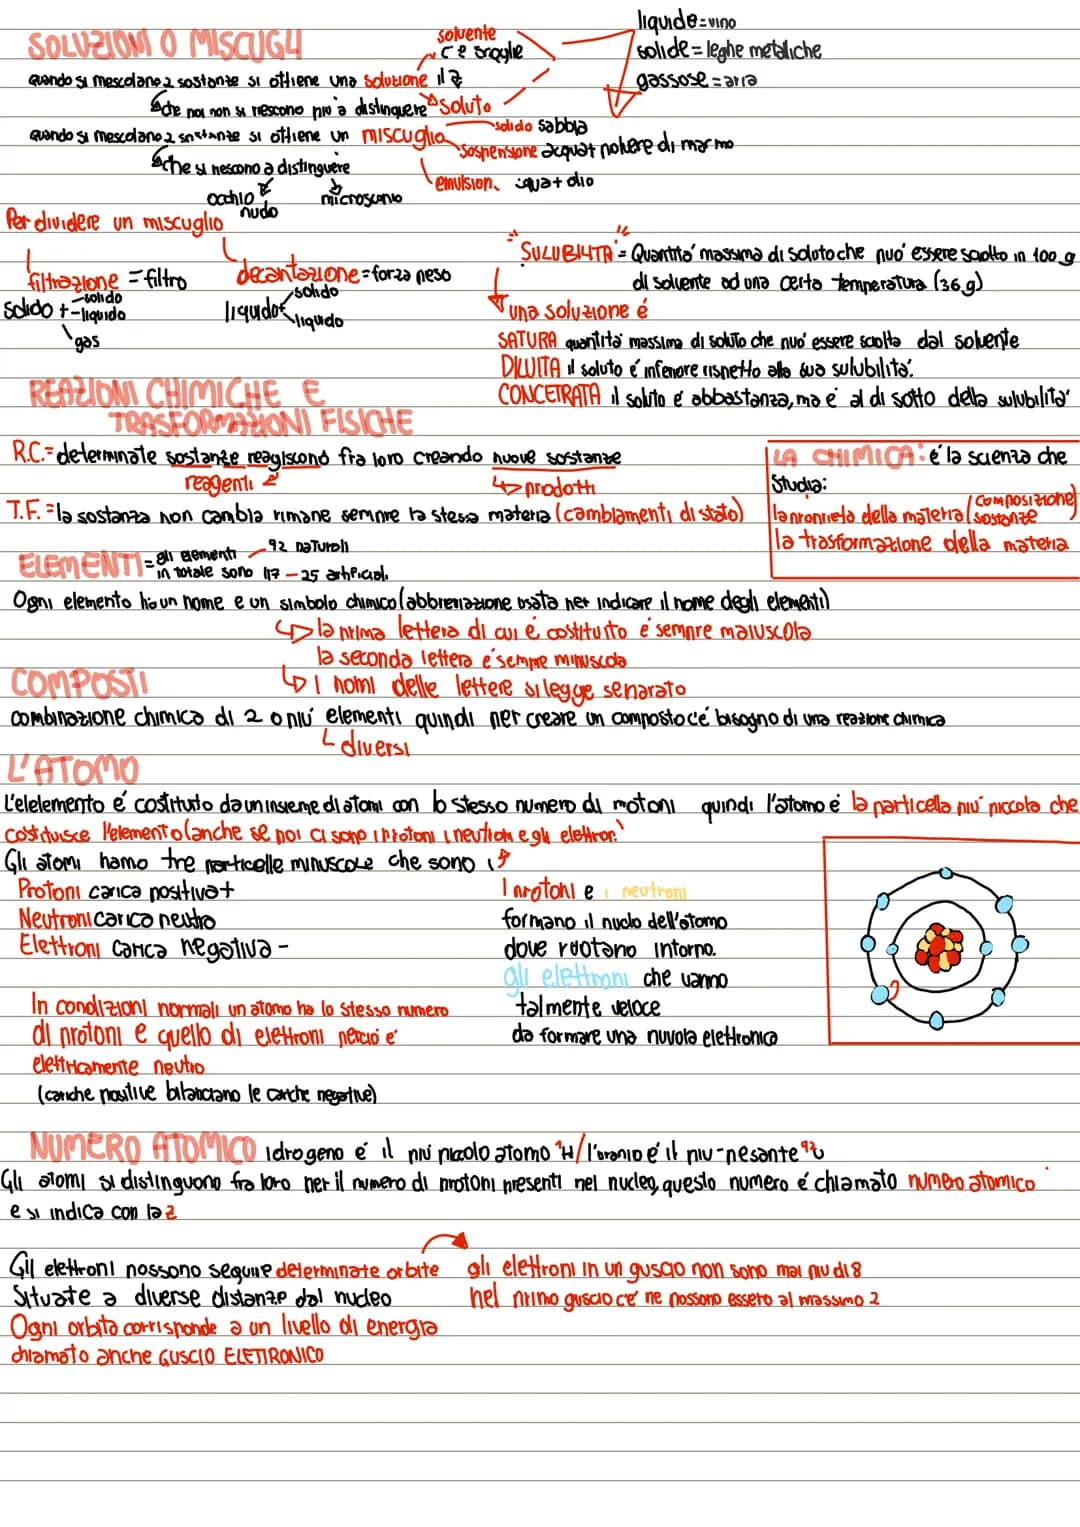 SOLUZIONI O MISCUGLI
solvente
c'è scioglie
liquide = vino
solide = leghe metalliche
gassose = aria
quando si mescolano 2 sostanze si ottiene una soluzione il 2
che noi non si riescono più a distinguere soluto
quando si mescolano 2 sostanze si ottiene un miscuglio
solido sabbia
sospensione acqua + polvere di marmo
che si riescono a distinguere
emulsion. acqua + olio
occhio nudo
microscopio
Per dividere un miscuglio
filtrazione = filtro
solido + -solido
-liquido
gas
decantazione = forza peso
liquido + solido
liquido
"SULUBILITA'" = Quantità massima di soluto che può essere sciolto in 100 g
di solvente ad una certa temperatura (36 g)
una soluzione é
SATURA quantità massima di soluto che può essere sciolta dal solvente
DILUITA il soluto é inferiore rispetto alla sua sulubilita'.
CONCETRATA il soluto e' abbastanza, ma é al di sotto della sulubilita'
REAZIONI CHIMICHE E
TRASFORMAZIONI FISICHE
R.C. = determinate sostanze reagiscono fra loro creando nuove sostanze
reagenti
prodotti
T.F. = la sostanza non cambia rimane sempre la stessa materia (cambiamenti di stato)
LA CHIMICA: é la scienza che
studia:
la proprietà della materia (composizione)
sostanze
la trasformazione della materia
ELEMENTI = gli elementi 92 naturali
in totale sono 117 - 25 artificiali.
Ogni elemento ha un nome e un simbolo chimico (abbreviazione usata per indicare il nome degli elementi)
la prima lettera di cui é costituito é sempre maiuscola
la seconda lettera é sempre minuscola
I nomi delle lettere si legge separato
COMPOSTI
combinazione chimica di 2 o più elementi quindi per creare un composto c'é bisogno di una reazione chimica
diversi
L'ATOMO
L'elelemento é costituito da un insieme di atomi con lo stesso numero di protoni quindi l'atomo é la particella più piccola che
costituisce l'elemento (anche se poi ci sono i protoni i neutroni e gli elettroni)
Gli atomi hanno tre particelle minuscole che sono i
Protoni carica positiva +
Neutroni carica neutro
Elettroni carica negativa -
I protoni e i neutroni
formano il nuclo dell'atomo
dove ruotano intorno.
gli elettroni che vanno
talmente veloce
da formare una nuvola elettronica
In condizioni normali un atomo ha lo stesso numero
di protoni e quello di elettroni perciò é
elettricamente neutro
(cariche positive bilanciano le cariche negative)
NUMERO ATOMICO idrogeno é il più piccolo atomo ¹H / l'uranio é il più pesante ⁹²U
Gli atomi si distinguono fra loro per il numero di protoni presenti nel nucleo, questo numero é chiamato numero atomico
e si indica con la z
Gli elettroni possono seguire determinate orbite
Situate a diverse distanze dal nucleo
Ogni orbita corrisponde a un livello di energia
chiamato anche GUSCIO ELETTRONICO
gli elettroni in un guscio non sono mai più di 8
nel primo guscio c'é ne possono essero al massimo 2